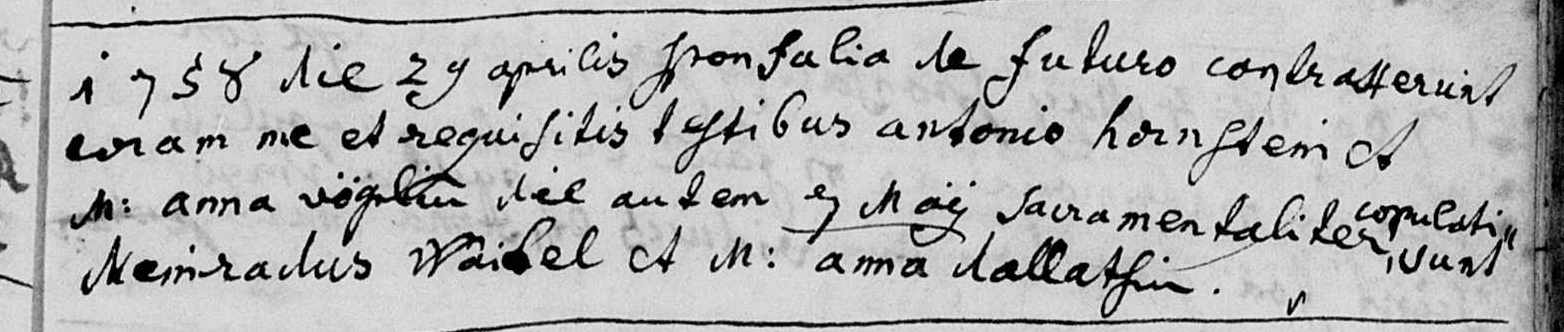 1758 die 29 aprilis sponsalia de futuro contraxerunt
coram me et requisitis testibus antonio hornstein et
M: anna vögelin die autem 9 Maÿ sacramentaliter copulati sunt
Meinradus Waibel et M: anna dallathin.